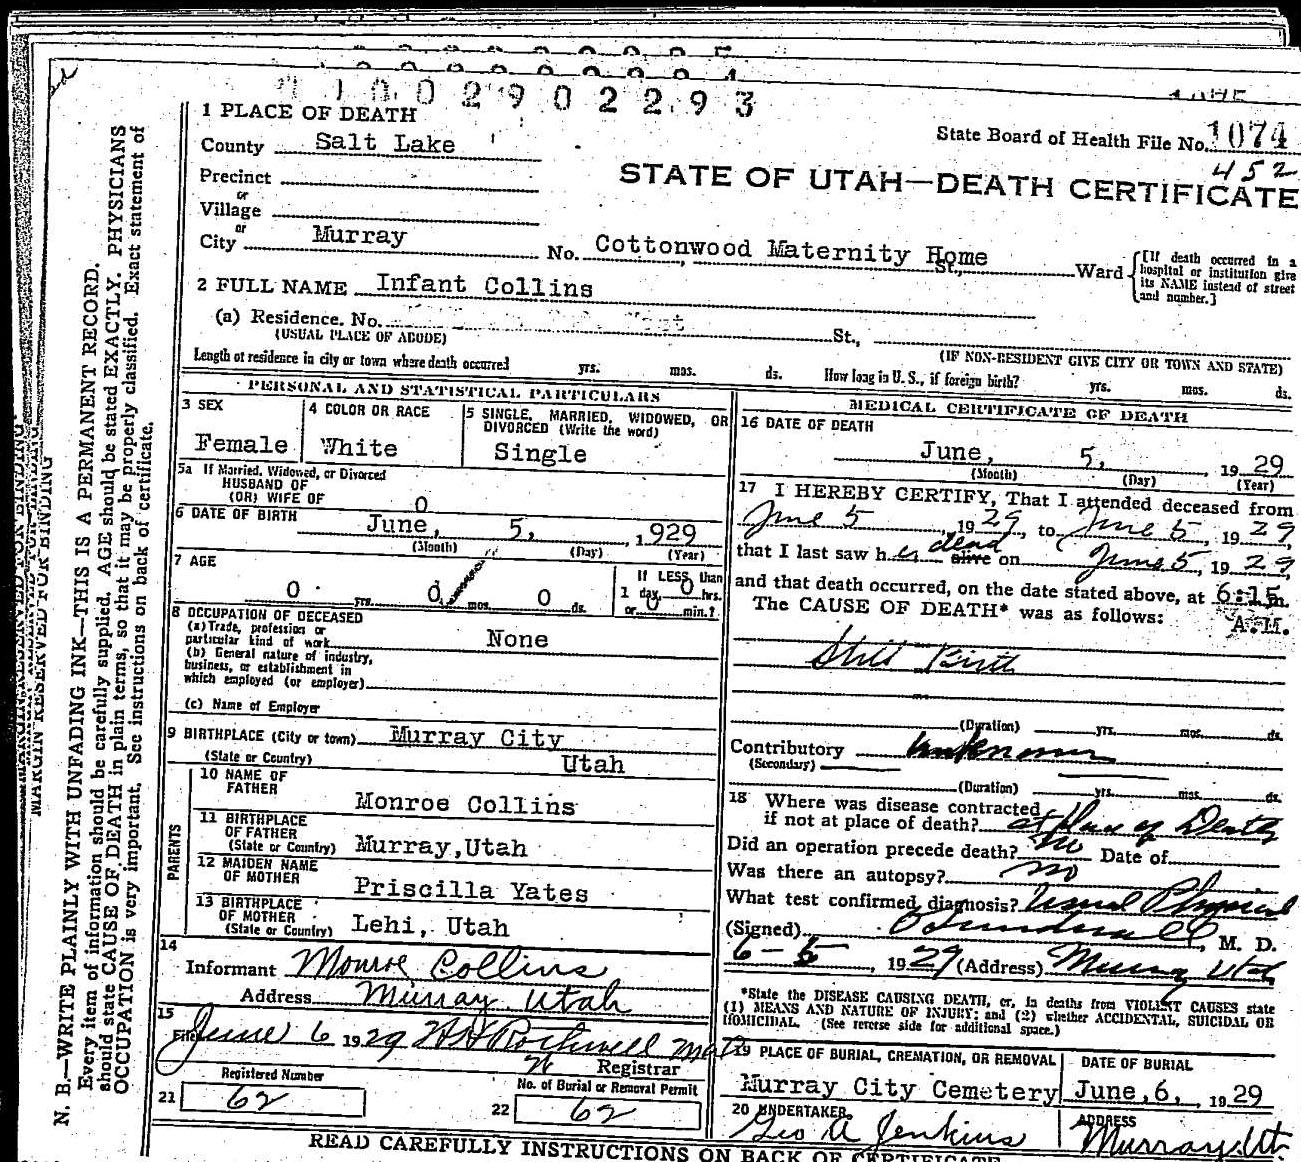 1 0 0 2 9 0 2 2 9 3
1 PLACE OF DEATH
State Board of Health File No. 1074
452
County Salt Lake
STATE OF UTAH—DEATH CERTIFICATE
Precinct
or
Village
or
City Murray No. Cottonwood Maternity Home St., Ward
[If death occurred in a hospital or institution give its NAME instead of street and number.]
2 FULL NAME Infant Collins
(a) Residence. No. St.,
(USUAL PLACE OF ABODE) (IF NON-RESIDENT GIVE CITY OR TOWN AND STATE)
Length of residence in city or town where death occurred yrs. mos. ds. How long in U. S., if foreign birth? yrs. mos. ds.
PERSONAL AND STATISTICAL PARTICULARS
3 SEX
Female
4 COLOR OR RACE
White
5 SINGLE, MARRIED, WIDOWED, OR
DIVORCED (Write the word)
Single
5a If Married, Widowed, or Divorced
HUSBAND OF
(OR) WIFE OF 0
6 DATE OF BIRTH June, 5, 1929
(Month) (Day) (Year)
7 AGE
0 yrs. 0 mos. 0 ds.
If LESS than
1 day, 0 hrs.
or 0 min.?
8 OCCUPATION OF DECEASED
(a) Trade, profession or
particular kind of work None
(b) General nature of industry,
business, or establishment in
which employed (or employer)
(c) Name of Employer
9 BIRTHPLACE (City or town) Murray City
(State or Country) Utah
PARENTS
10 NAME OF
FATHER Monroe Collins
11 BIRTHPLACE
OF FATHER
(State or Country) Murray, Utah
12 MAIDEN NAME
OF MOTHER Priscilla Yates
13 BIRTHPLACE
OF MOTHER
(State or Country) Lehi, Utah
14
Informant Monroe Collins
Address Murray Utah
15
Filed June 6 1929 Rothwell
Registrar
Registered Number
21 62
No. of Burial or Removal Permit
22 62
MEDICAL CERTIFICATE OF DEATH
16 DATE OF DEATH
June, 5, 1929
(Month) (Day) (Year)
17 I HEREBY CERTIFY, That I attended deceased from
June 5, 1929, to June 5, 1929
that I last saw her dead alive on June 5, 1929,
and that death occurred, on the date stated above, at 6:15 m.
A.M.
The CAUSE OF DEATH* was as follows:
Still Birth
(Duration) yrs. mos. ds.
Contributory unknown
(Secondary)
(Duration) yrs. mos. ds.
18 Where was disease contracted
if not at place of death? at place of Death
Did an operation precede death? no Date of
Was there an autopsy? no
What test confirmed diagnosis? Usual Physical
(Signed) , M. D.
6-5, 1929 (Address) Murray Utah
*State the DISEASE CAUSING DEATH, or, in deaths from VIOLENT CAUSES state
(1) MEANS AND NATURE OF INJURY; and (2) whether ACCIDENTAL, SUICIDAL OR
HOMICIDAL. (See reverse side for additional space.)
19 PLACE OF BURIAL, CREMATION, OR REMOVAL
Murray City Cemetery
DATE OF BURIAL
June, 6, 1929
20 UNDERTAKER
Geo A Jenkins
ADDRESS
Murray Ut.
READ CAREFULLY INSTRUCTIONS ON BACK OF CERTIFICATE
MARGIN RESERVED FOR BINDING
N. B.—WRITE PLAINLY WITH UNFADING INK—THIS IS A PERMANENT RECORD.
Every item of information should be carefully supplied. AGE should be stated EXACTLY. PHYSICIANS
should state CAUSE OF DEATH in plain terms, so that it may be properly classified. Exact statement of
OCCUPATION is very important. See instructions on back of certificate.